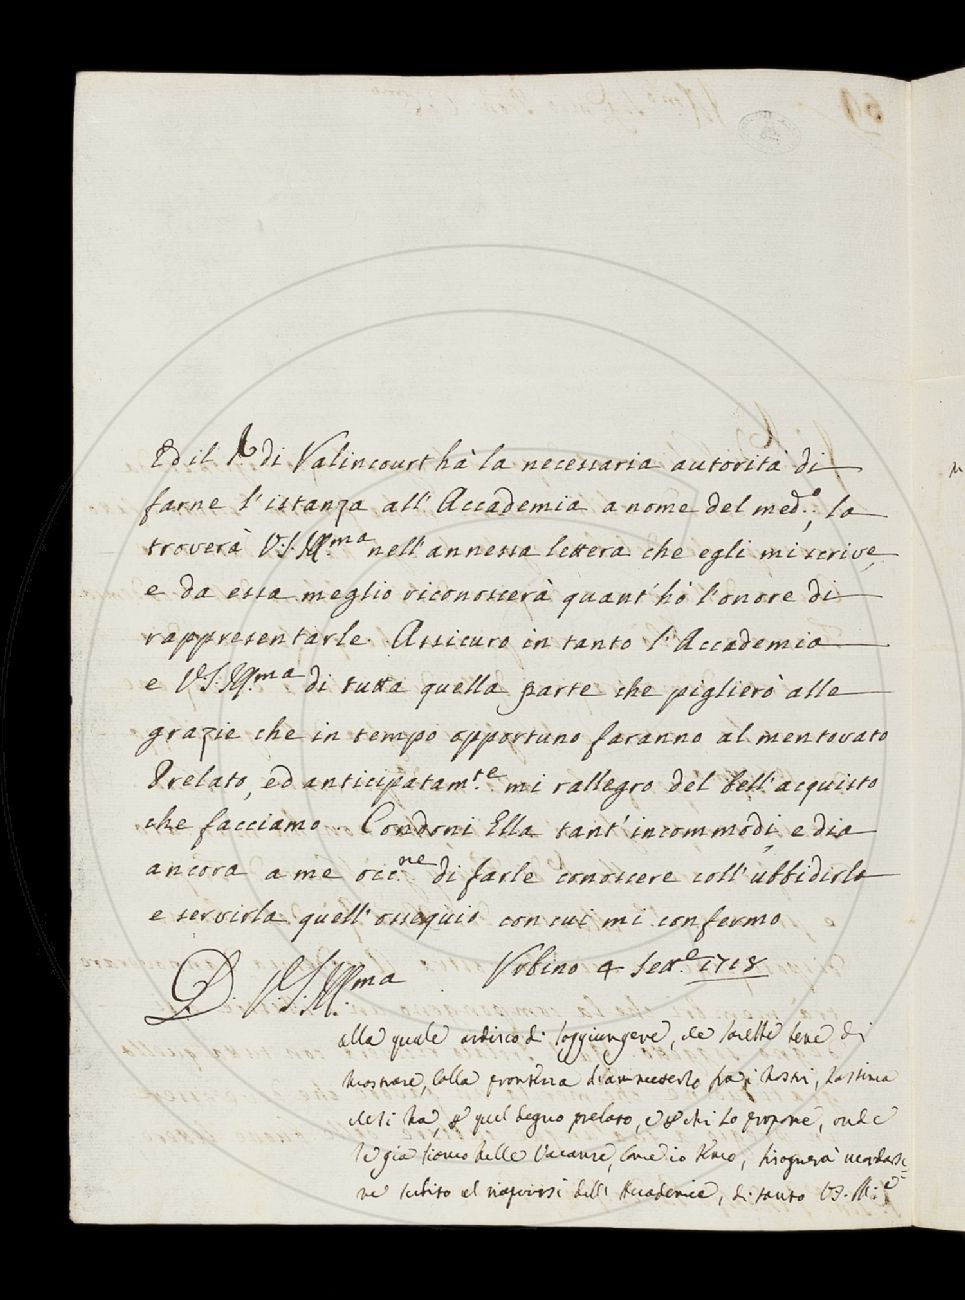 Ed il di Valincourt hà la necessaria autorità di
farne l'istanza all'Accademia a nome del med.º, la
troverà V.S. Ill.ma nell'annessa lettera che egli mi scrive,
e da essa meglio riconoscerà quant'hò l'onore di
rappresentarle. Assicuro in tanto l'Accademia
e V.S. Ill.ma di tutta quella parte che piglierò alle
grazie che in tempo opportuno faranno al mentovato
Prelato, ed anticipatam.te mi rallegro del bell'acquisto
che facciamo. Condoni Ella tant'incommodi, e dia
ancora a me occ.ne di farle conoscere coll'ubbidirla
e servirla quell'ossequio con cui mi confermo
D. V.S. Ill.ma Urbino 4 Sett.e 1718
alla quale ardisco di soggiungere, che sarebbe bene di
mostrare, colla prontezza d'ammetterlo fra i nostri, la stima
che si ha, e quel degno prelato, e chi lo propone, onde
se già siamo nelle Vacanze, come io temo, bisognerà
subito al riaprirsi dell'Accademia, di tanto V.S. Ill.